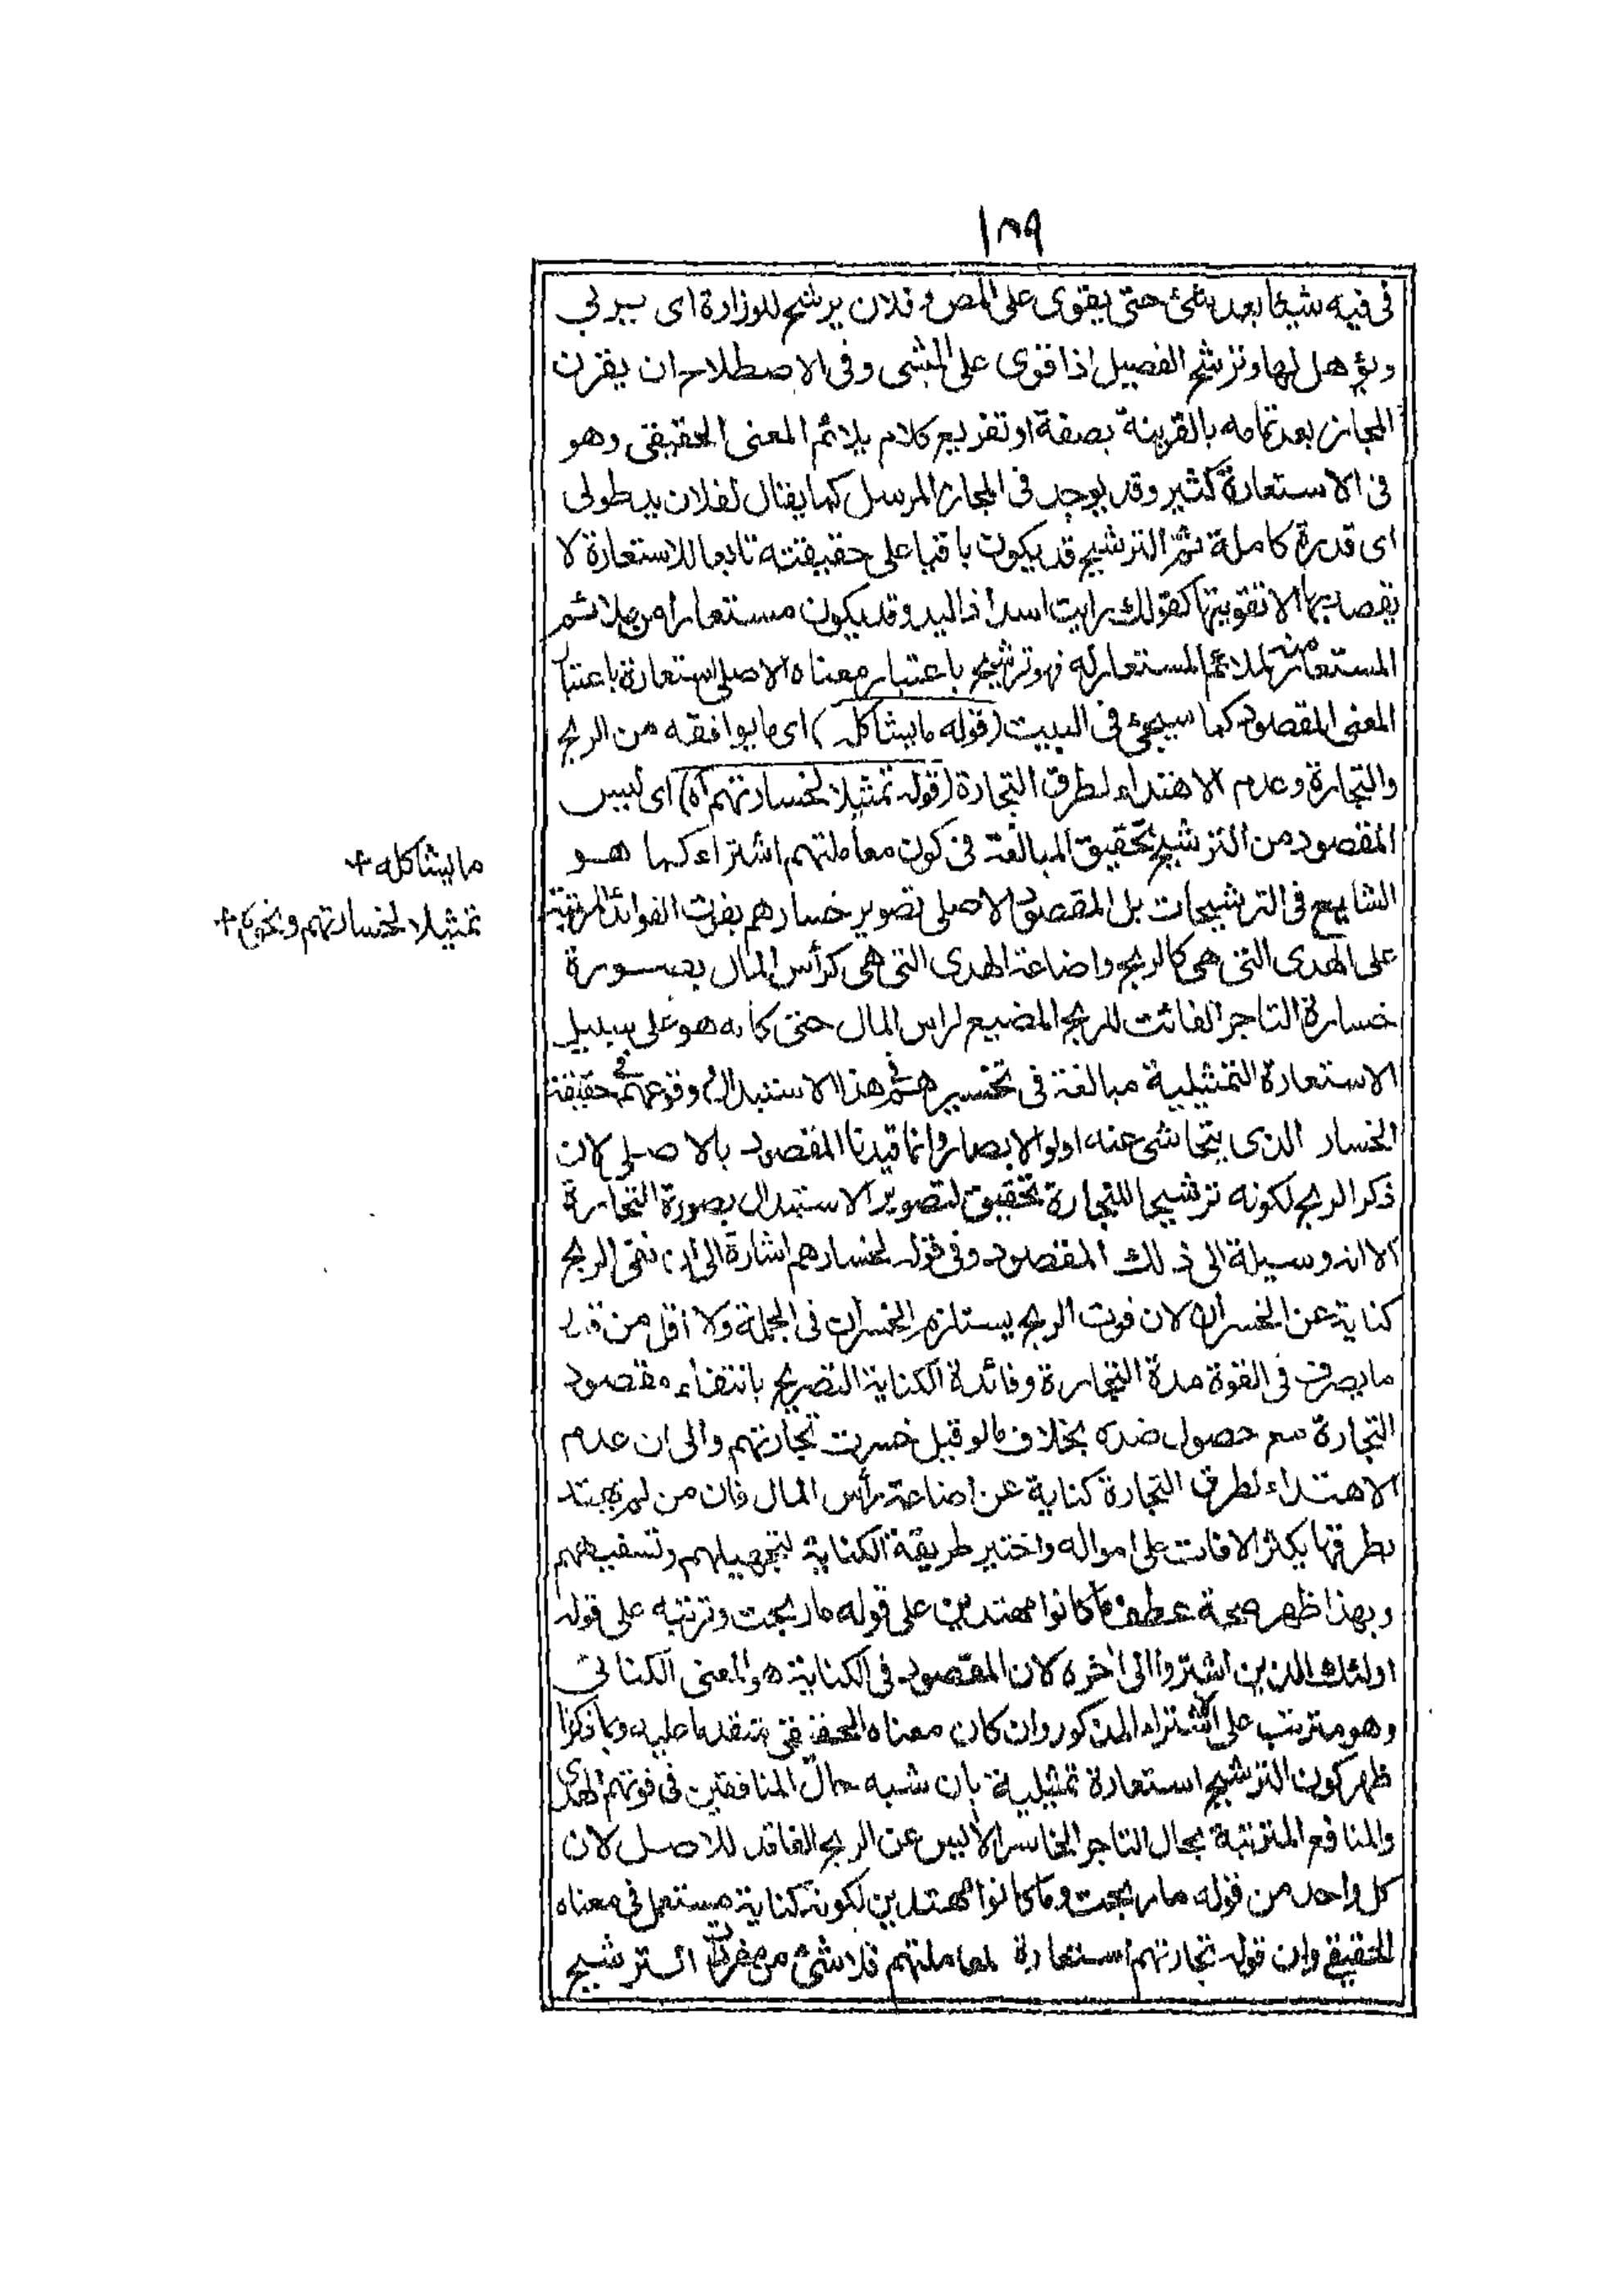 ١٨٩
فى فيه شيئا بعد شئ حتى يقوى على المص و فلان يرشح للوزارة اى يربى
ويؤهل لها وترشح الفصيل اذا قوى على المشى وفى الاصطلاح ان يقرن
المجاز بعد تمامه بالقرينة بصفة او تفريع كلام يلائم المعنى الحقيقى وهو
فى الاستعارة كثير وقد يوجد فى المجاز المرسل كما يقال لفلان يد طولى
اى قدرة كاملة ثم الترشيح قد يكون باقيا على حقيقته تابعا للاستعارة لا
يقصد بها الا تقويتها كقولك رايت اسدا ذا اليد وقد يكون مستعارا من ملائم
المستعار منه لملائم المستعار له فهو ترشيح باعتبار معناه الاصلى استعارة باعتبار
المعنى المقصود كما سيجئ فى البيت (قوله ما يشاكله) اى ما يوافقه من الربح
والتجارة وعدم الاهتداء لطرق التجارة (قوله تمثيلا لخسارتهم اه) اى ليس
المقصود من الترشيح تحقيق المبالغة فى كون معاملتهم اشتراء كما هو
الشايع فى الترشيحات بل المقصود الاصلى تصوير خسارهم بفوت الفوائد المرتبة
على الهدى التى هى كالربح واضاعة الهدى التى هى كرأس المال بصورة
خسارة التاجر الفائت للربح المضيع لراس المال حتى كأنه هو على سبيل
الاستعارة التمثيلية مبالغة فى تخسيرهم فى هذا الاستبدال و وقوعهم فى حقيقة
الخسار الذى يتحاشى عنه اولوا الابصار وانما قيدنا المقصود بالاصلى لان
ذكر الربح لكونه ترشيحا للتجارة تحقيق لتصوير الاستبدال بصورة التجارة
الا انه وسيلة الى ذلك المقصود وفى قوله لخسارهم اشارة الى ان نفى الربح
كناية عن الخسران لان فوت الربح يستلزم الخسران فى الجملة ولا اقل من قدر
ما يصرف فى القوة مدة التجارة وفائدة الكناية التصريح بانتفاء مقصود
التجارة مع حصول ضده بخلاف ما لو قيل خسرت تجارتهم والى ان عدم
الاهتداء لطرق التجارة كناية عن اضاعة رأس المال فان من لم يهتد
بطرقها يكثر الافات على امواله واختير طريقة الكناية لتجهيلهم وتسفيههم
وبهذا ظهر صحة عطف ما كانوا مهتدين على قوله ما ربحت وترتبه على قوله
اولئك الذين اشتروا الى اخره لان المقصود فى الكناية هو المعنى الكنائى
وهو مترتب على الاشتراء المذكور وان كان معناه الحقيقى متقدما عليه وبما ذكرنا
ظهر كون الترشيح استعارة تمثيلية بان شبه حال المنافقين فى فوتهم الهدى
والمنافع المترتبة بحال التاجر الخاسر الأيس عن الربح الفاقد للاصل لان
كل واحد من قوله ما ربحت وما كانوا مهتدين لكونه كناية مستعمل فى معناه
الحقيقى وان قوله تجارتهم استعارة لمعاملتهم فلا شئ من مفردات الترشيح
ما يشاكله +
تمثيلا لخسارتهم ونحوه +